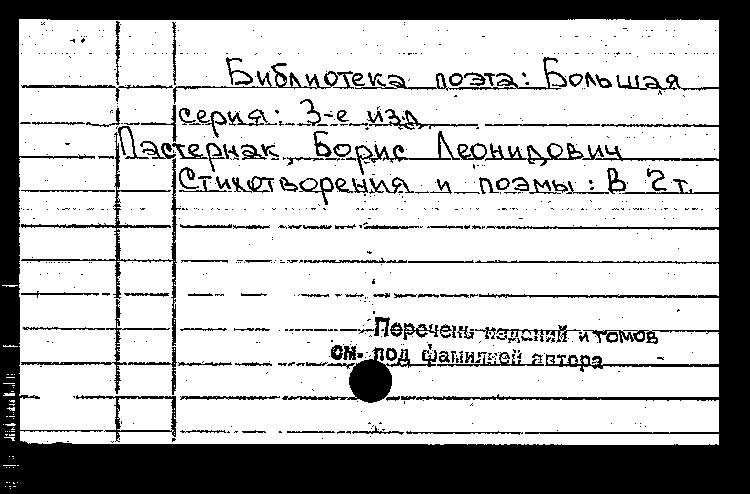 Библиотека поэта: Большая
серия: 3-е изд
Пастернак, Борис Леонидович
Стихотворения и поэмы: В 2 т.
Перечень изданий и томов
см. под фамилией автора